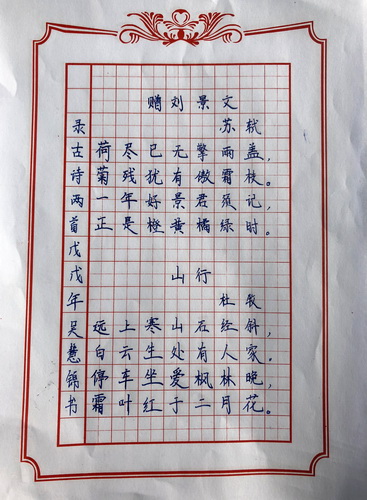 赠刘景文
苏轼
荷尽已无擎雨盖，
菊残犹有傲霜枝。
一年好景君须记，
正是橙黄橘绿时。
山行
杜牧
远上寒山石径斜，
白云生处有人家。
停车坐爱枫林晚，
霜叶红于二月花。
录古诗两首戊戌年吴慧锦书